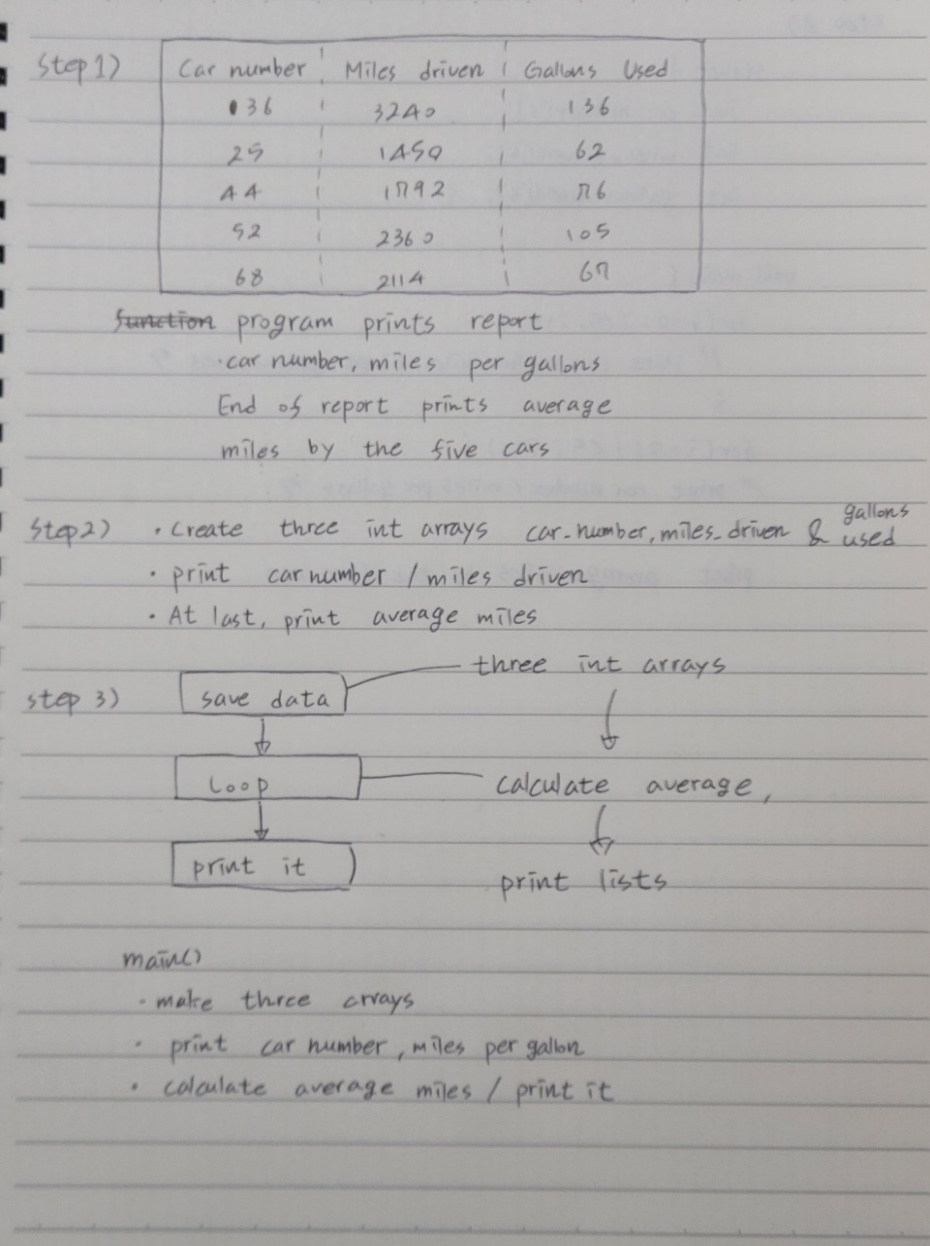 Step1)
Car number Miles driven Gallons Used
036 3240 136
25 1450 62
44 1792 76
52 2360 105
68 2114 67
function program prints report
·car number, miles per gallons
End of report prints average
miles by the five cars
Step2) · Create three int arrays car_number, miles_driven & gallons used
· print car number / miles driven
· At last, print average miles
step 3) save data three int arrays
Loop calculate average,
print it print lists
main()
· make three arrays
· print car number, miles per gallon
· calculate average miles / print it